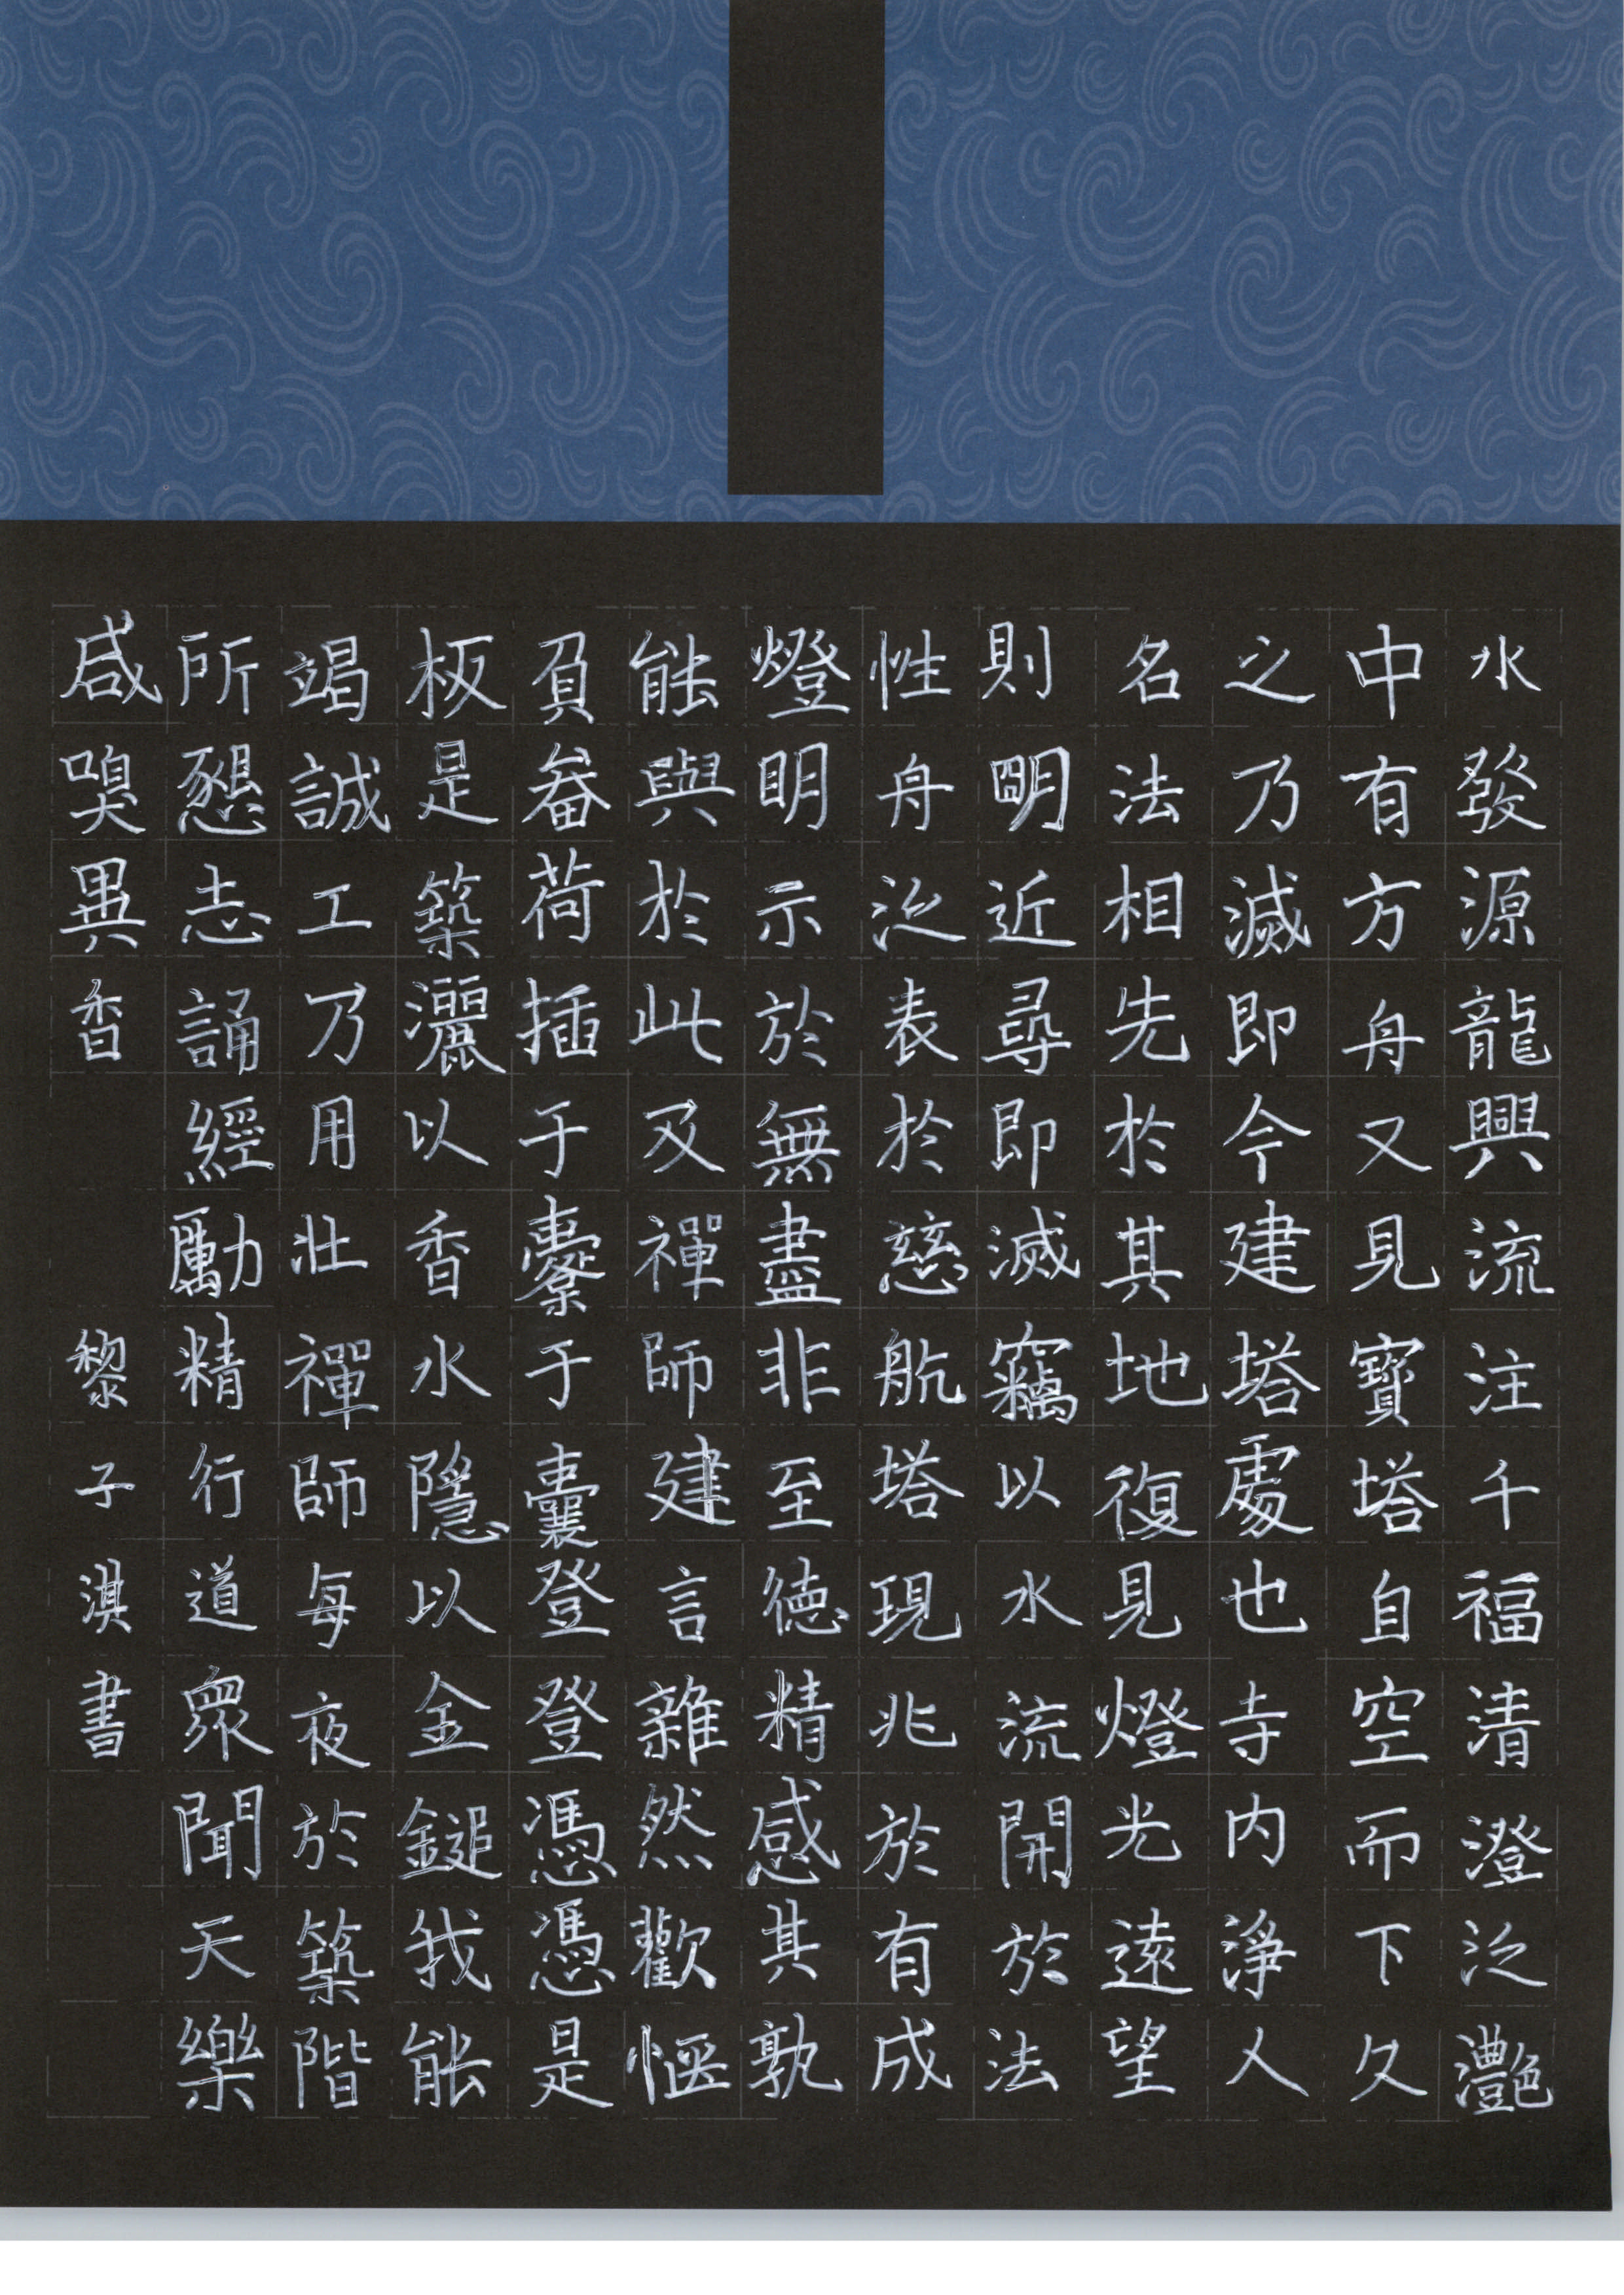 水發源龍興流注千福清澄泛灩
中有方舟又見寶塔自空而下久
之乃滅即今建塔處也寺内淨人
名法相先於其地復見燈光遠望
則明近尋即滅竊以水流開於法
性舟泛表於慈航塔現兆於有成
燈明示於無盡非至德精感其孰
能與於此及禪師建言雜然歡愜
負畚荷插于橐于囊登登憑憑是
板是築灑以香水隱以金鎚我能
竭誠工乃用壯禪師每夜於築階
所懇志誦經勵精行道眾聞天樂
咸嗅異香
黎子淇書